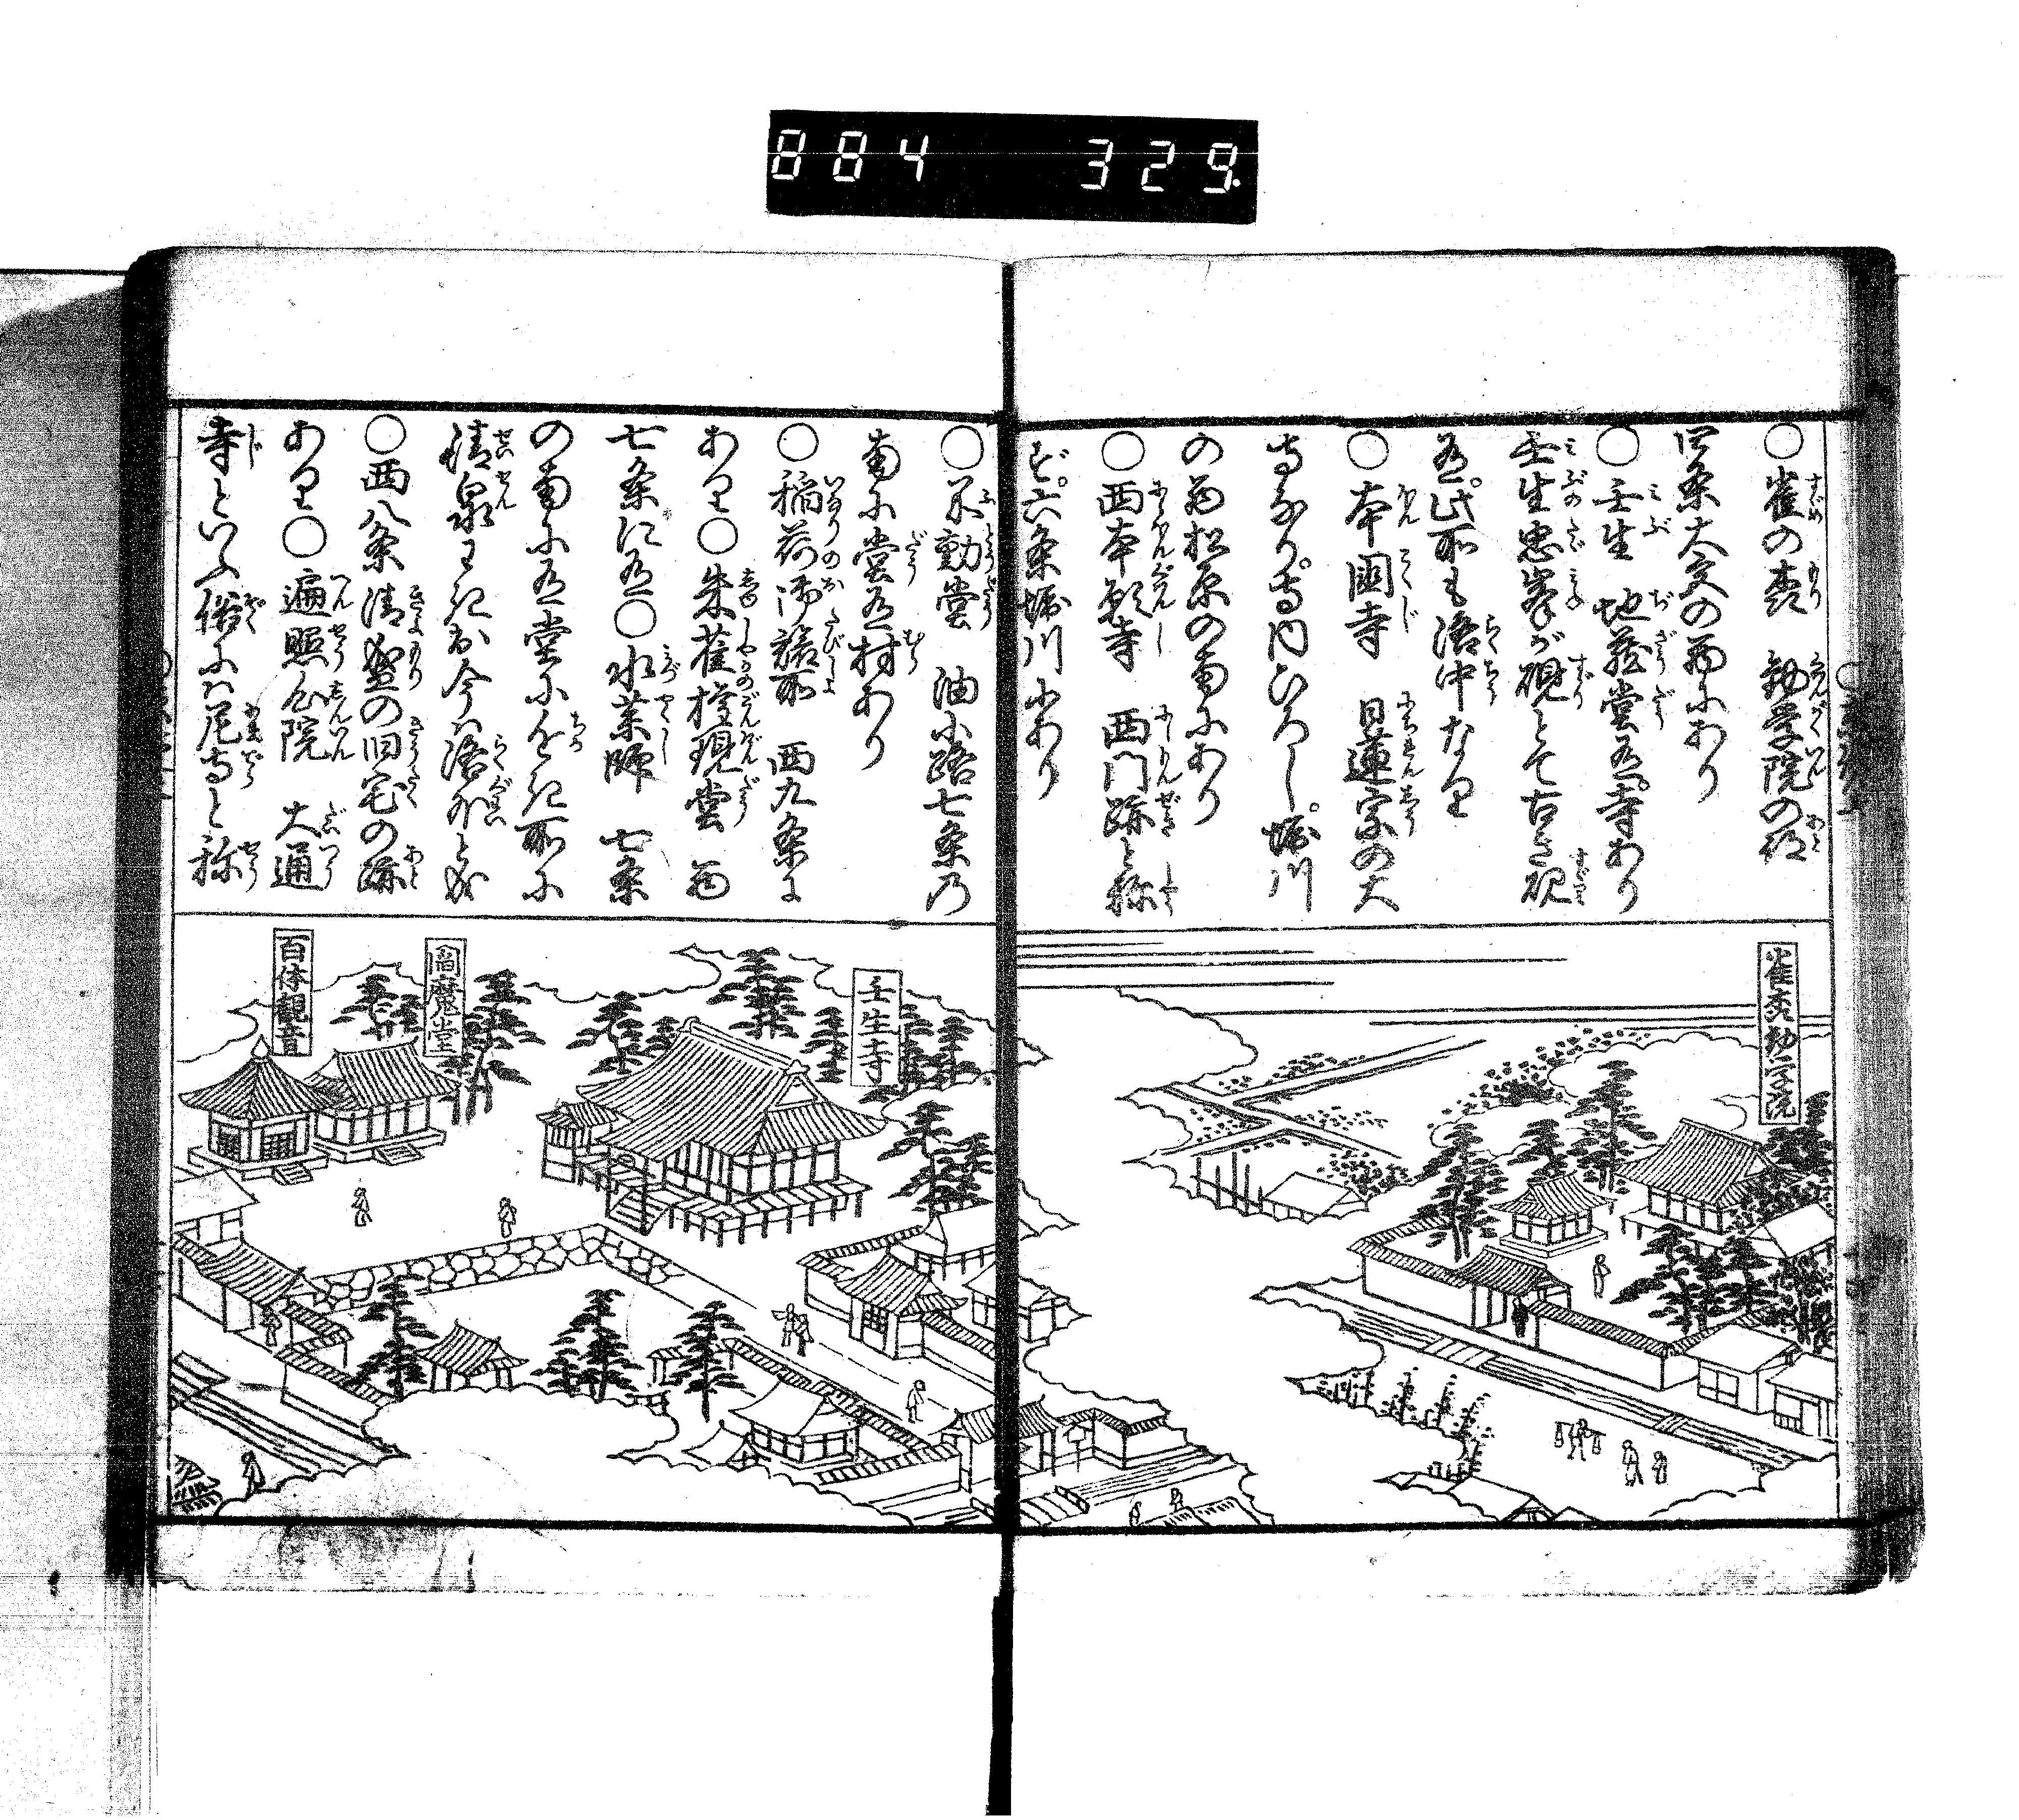 884 329
○雀の森 勧学院の跡
四条大宮の西にあり
○壬生 地蔵堂有。寺あり
壬生忠岑が硯とて古き硯
有。此所も洛中なり
○本圀寺 日蓮宗の大
寺なり。寺内ひろし。堀川
の西松原の南にあり
○西本願寺 西門跡と称
ず。六条堀川にあり
○不動堂 油小路七条乃
南に堂有村あり
○稲荷御旅所 西九条に
あり○朱雀権現堂 西
七条に有○水薬師 七条
の南に有堂にちかき所に
清泉わき出今は洛外と成
○西八条清盛の旧宅の跡
あり○遍照心院 大通
寺といふ俗には尼寺と称
雀森勧学院
壬生寺
閻魔堂
百体観音